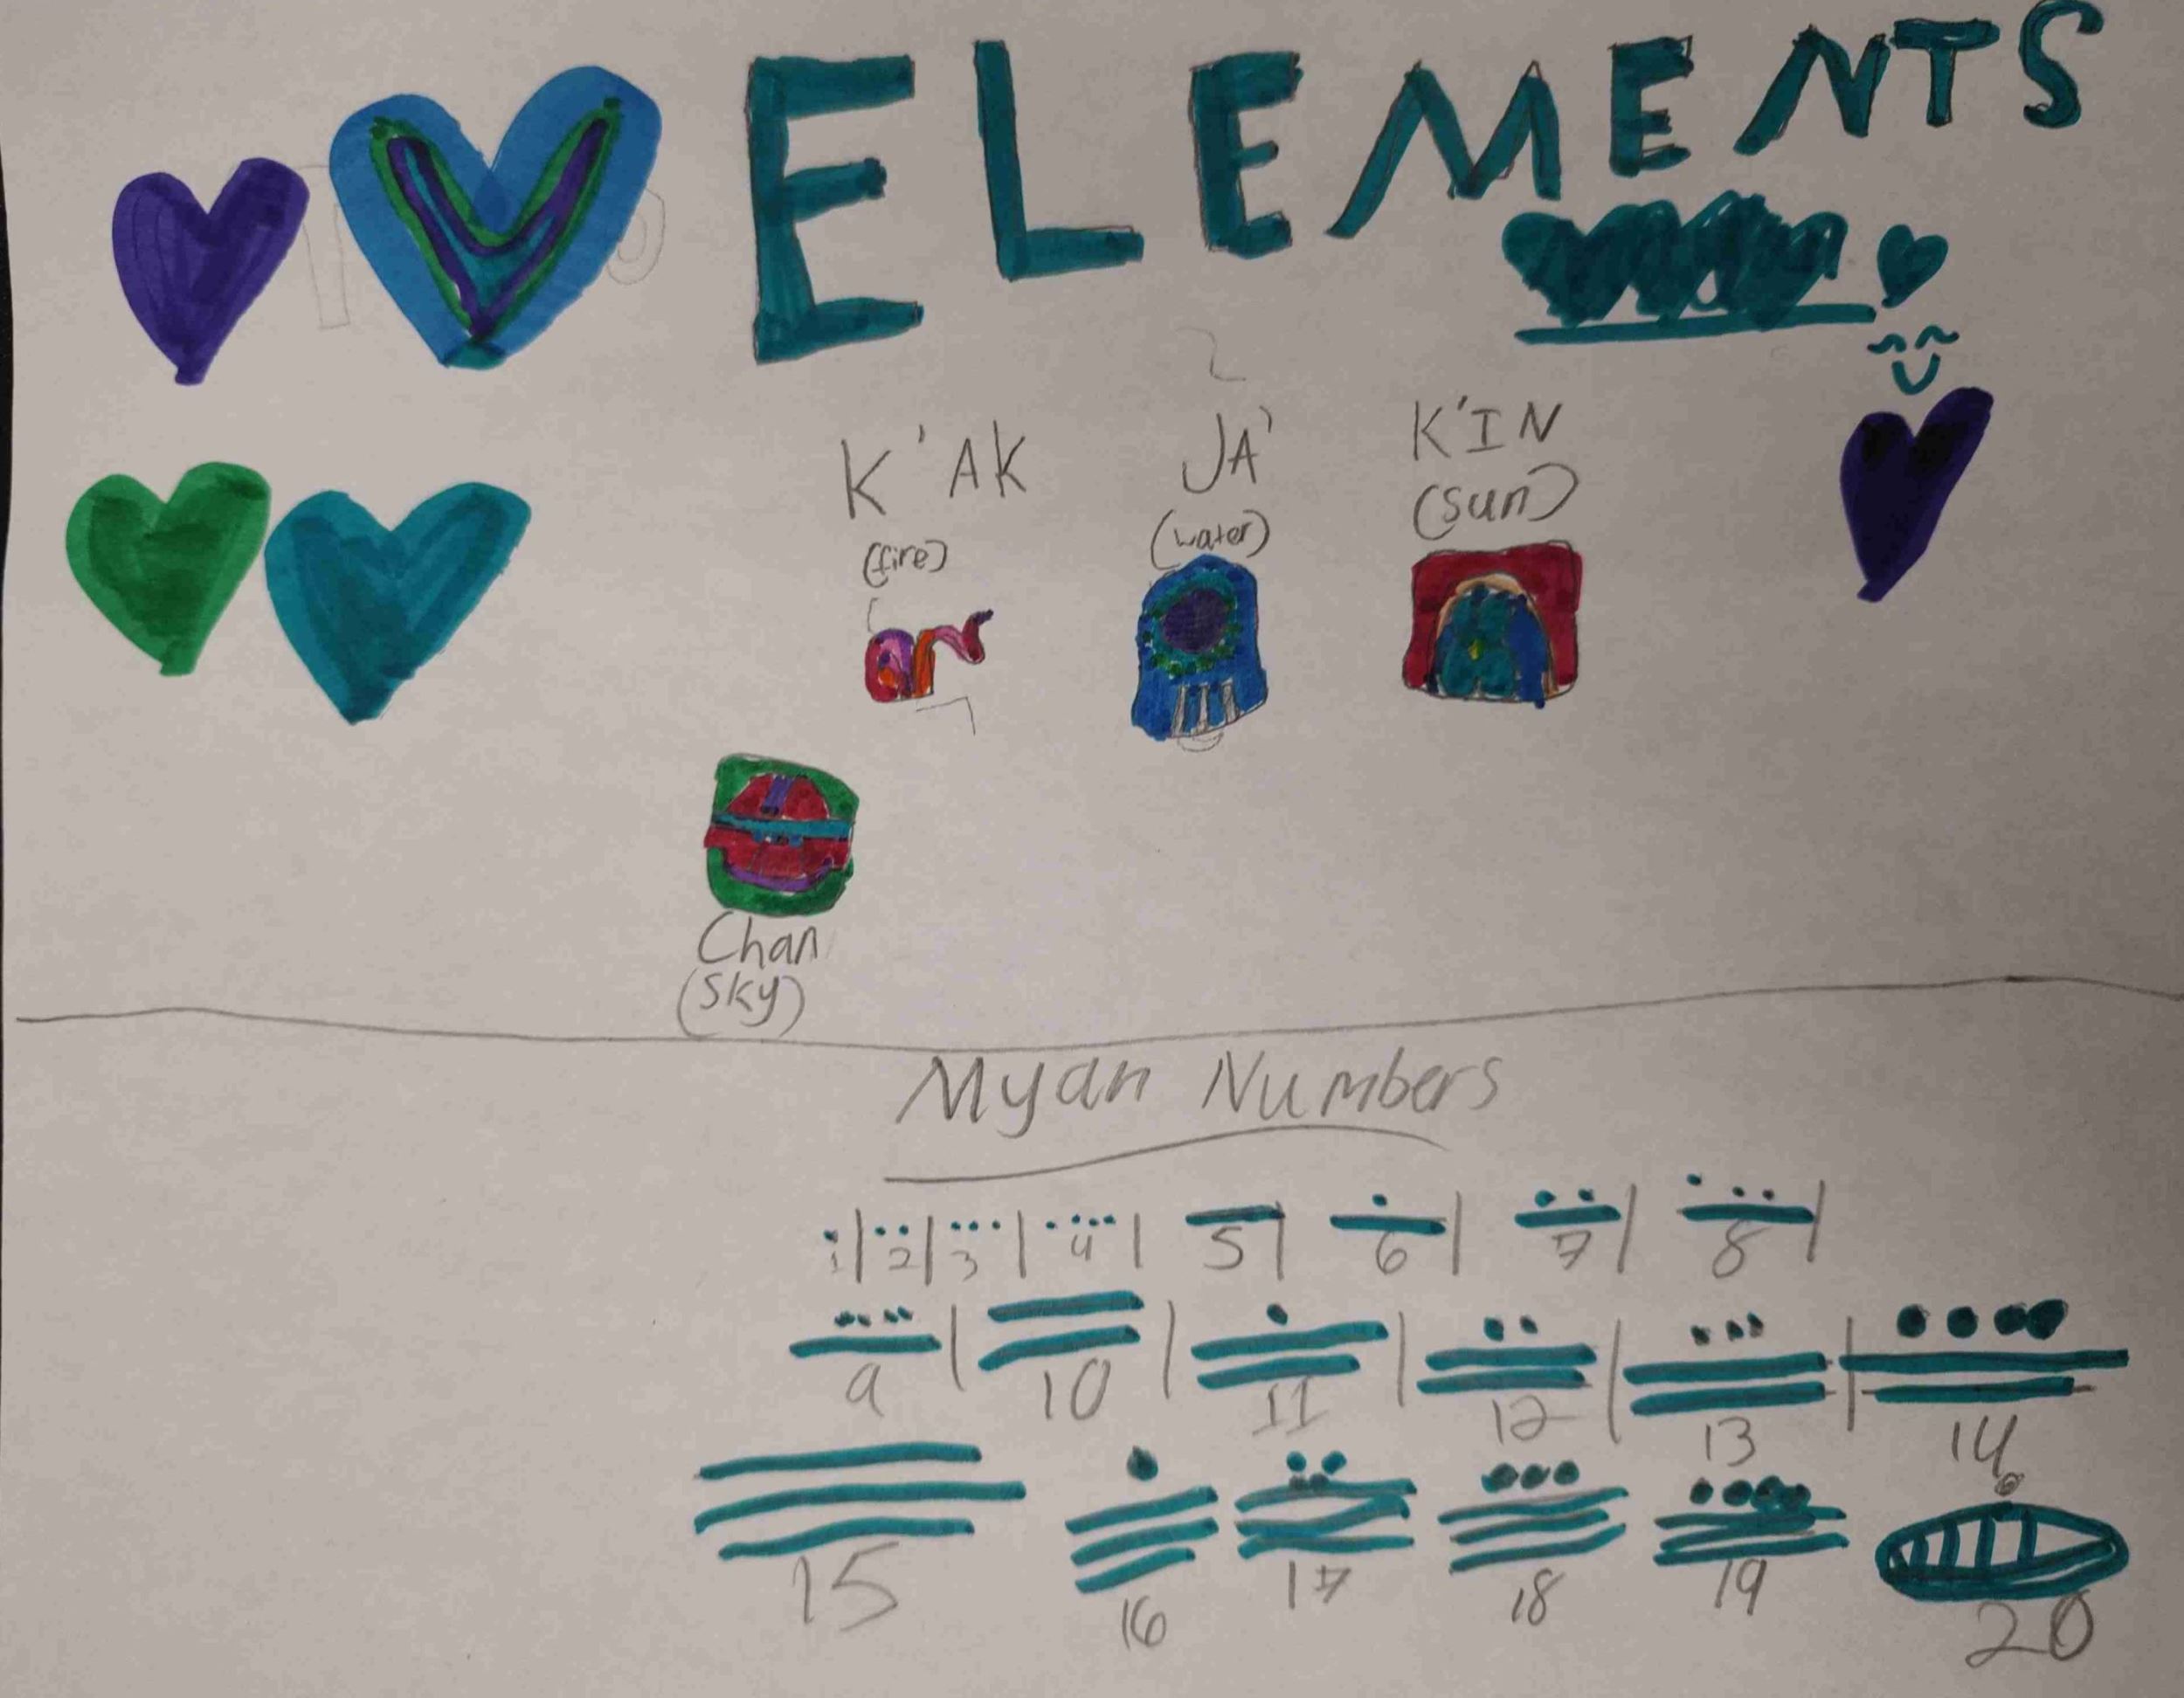 ELEMENTS
K'AK JA' K'IN
(fire) (water) (sun)
Chan
(sky)
Myan Numbers
1 2 3 4 5 6 7 8
9 10 11 12 13 14
15 16 17 18 19 20